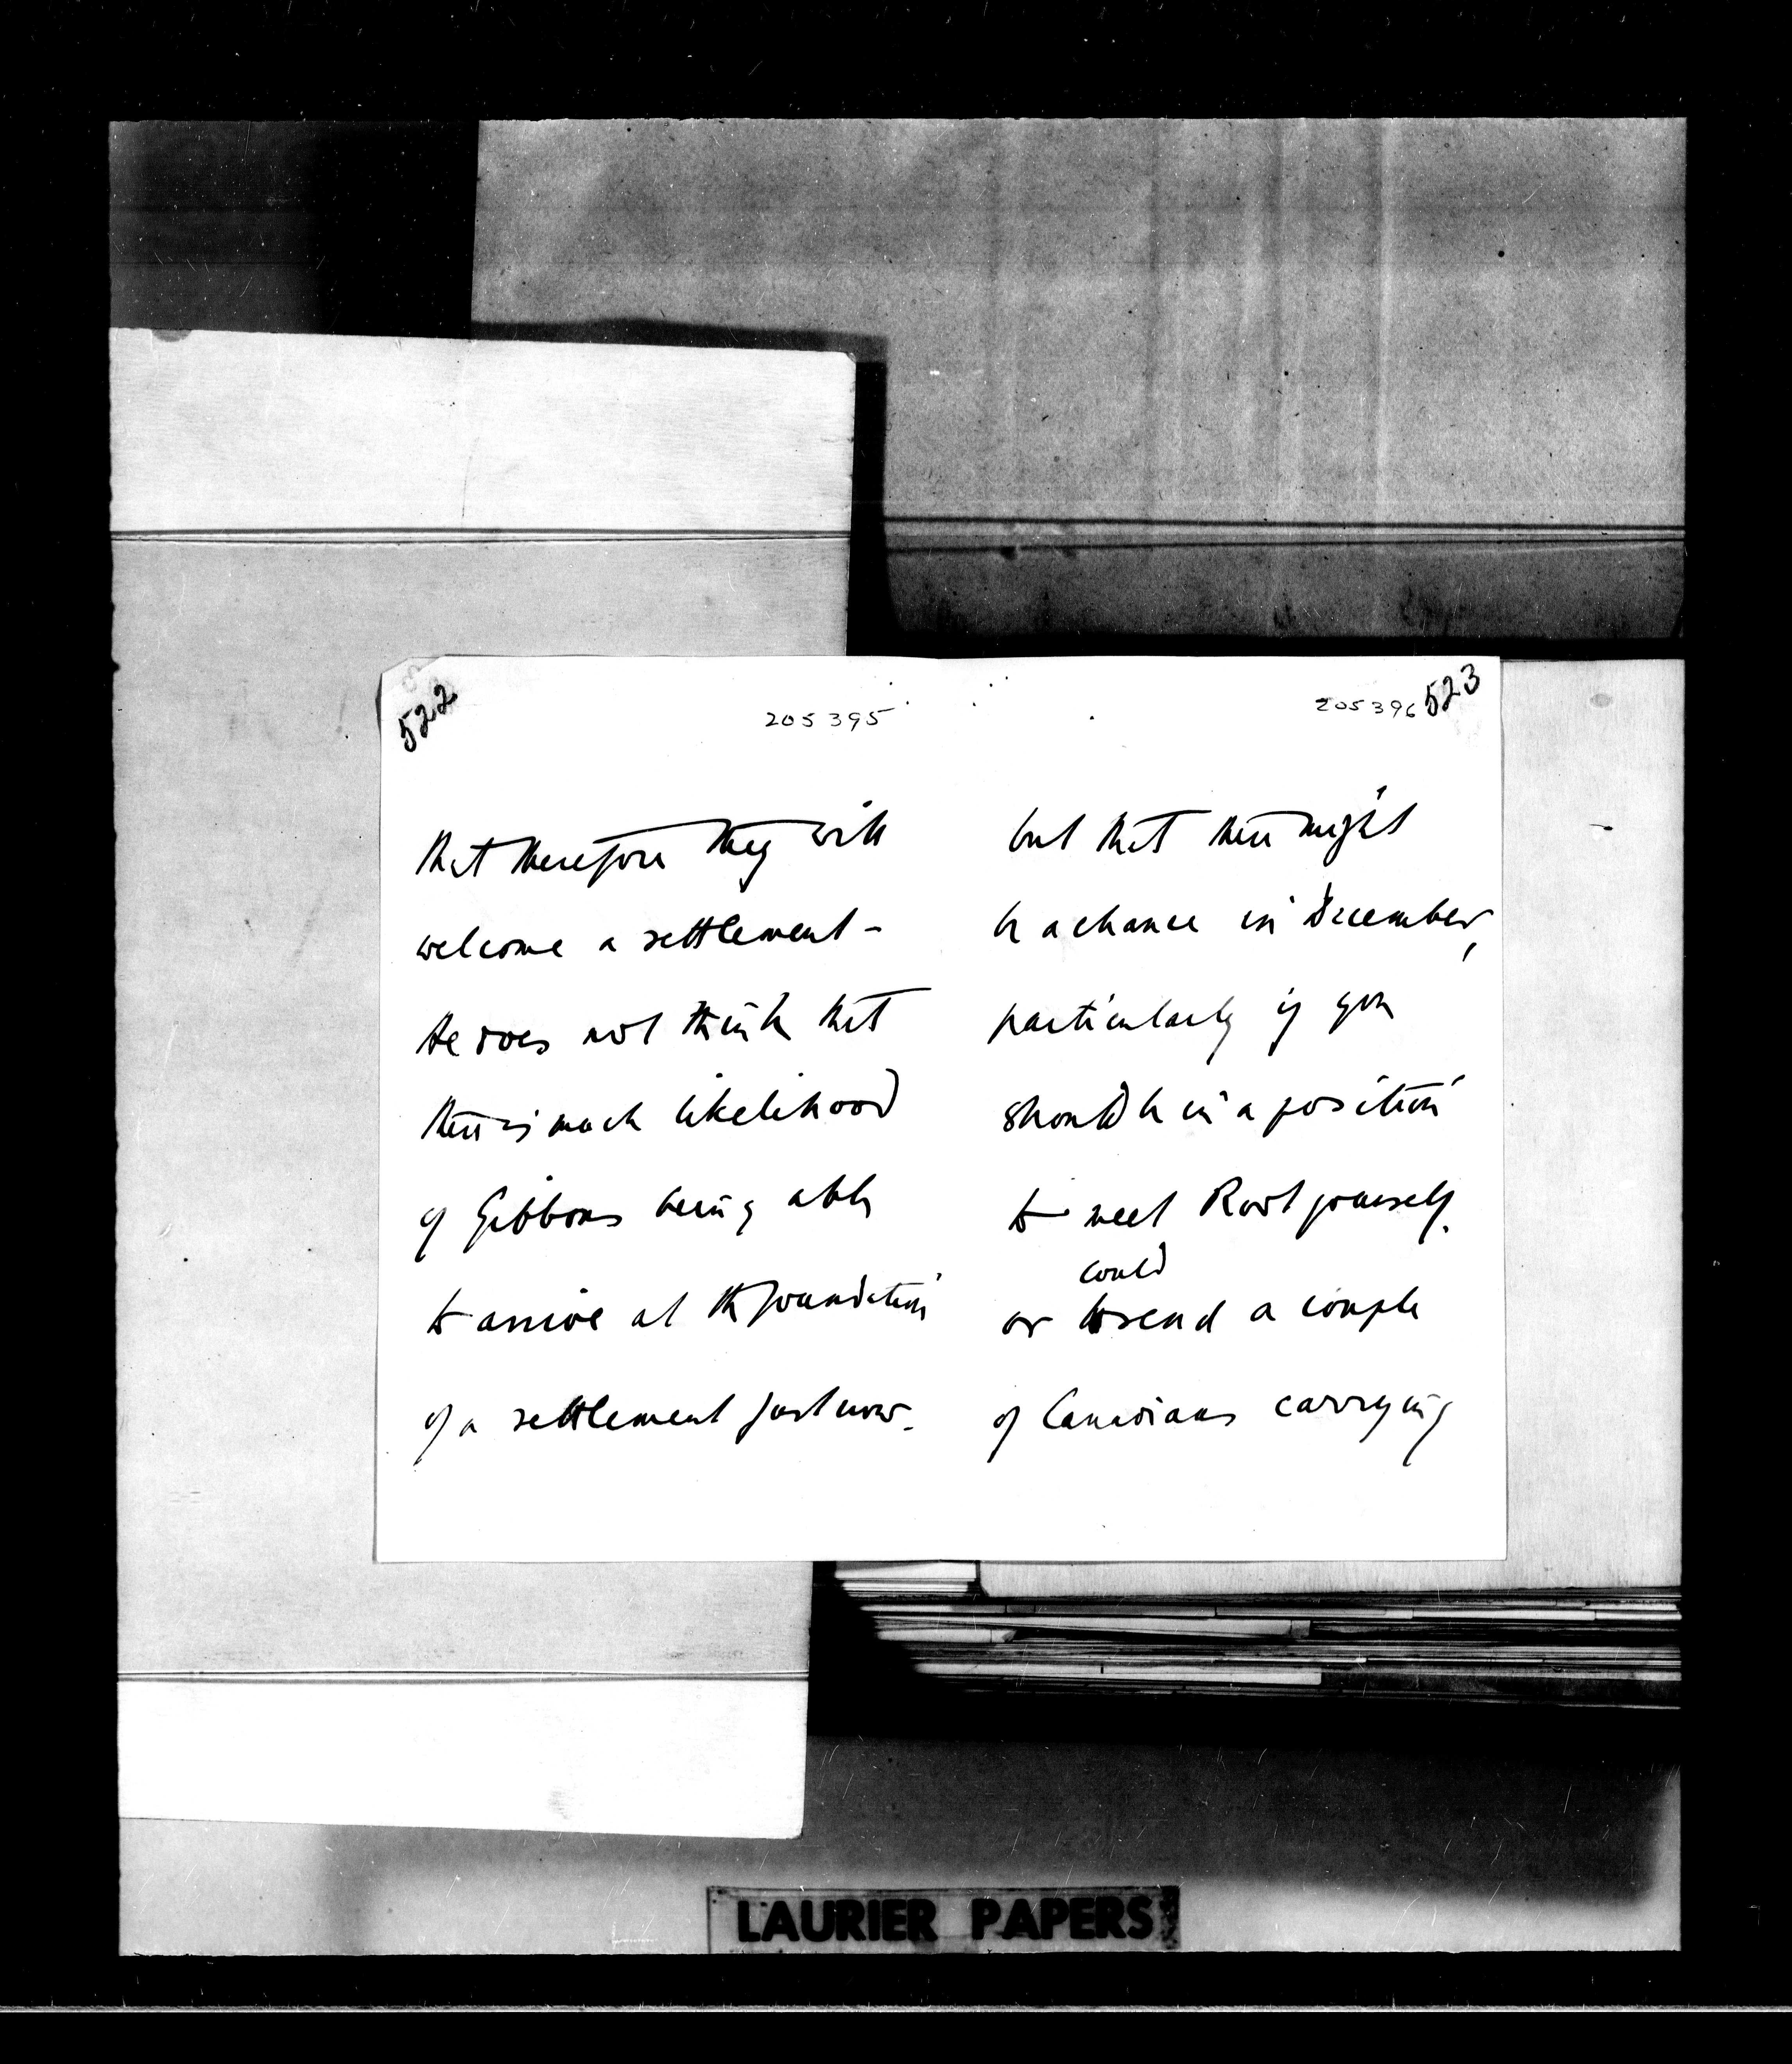 522
205395
that therefore they will
welcome a settlement -
He does not think that
there is much likelihood
of Gibbons being able
to arrive at the foundation
of a settlement just now.
205396 523
but that there might
be a chance in December,
particularly if you
should be in a position
to meet Root yourself.
could
or to send a couple
of Canadians carrying
LAURIER PAPERS